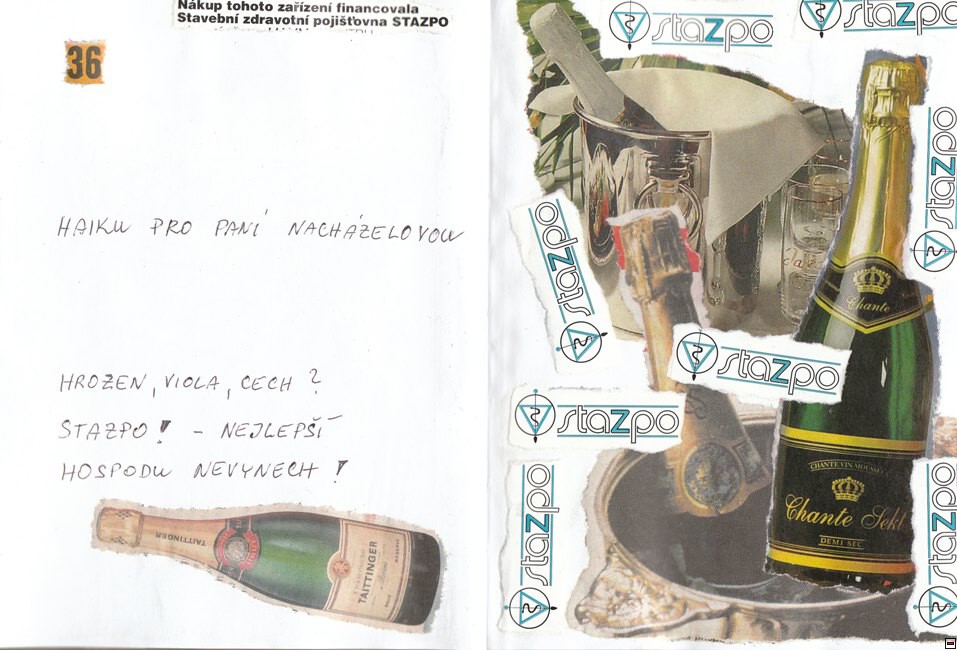 Nákup tohoto zařízení financovala
Stavební zdravotní pojišťovna STAZPO
36
HAIKU PRO PANÍ NACHÁZELOVOU
HROZEN, VIOLA, CECH ?
STAZPO! - NEJLEPŠÍ
HOSPODU NEVYNECH !
TAITTINGER
TAITTINGER
stazpo
stazpo
stazpo
stazpo
Chante
stazpo
stazpo
stazpo
stazpo
CHANTE VIN MOUSSEUX
Chante Sekt
DEMI SEC